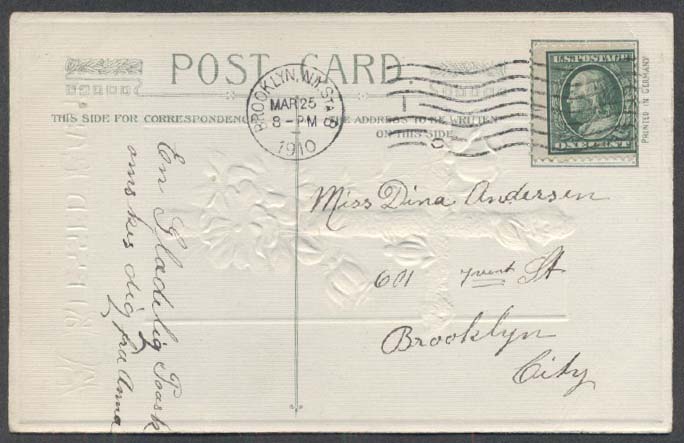 POST CARD
THIS SIDE FOR CORRESPONDENCE
THE ADDRESS TO BE WRITTEN
ON THIS SIDE
BROOKLYN, N.Y. STA
MAR 25
8 - PM
1910
U.S. POSTAGE
ONE CENT
PRINTED IN GERMANY
En Gladelig Paask
ønskes dig fra Anna
Miss Dina Andersen
601 St
Brooklyn
City